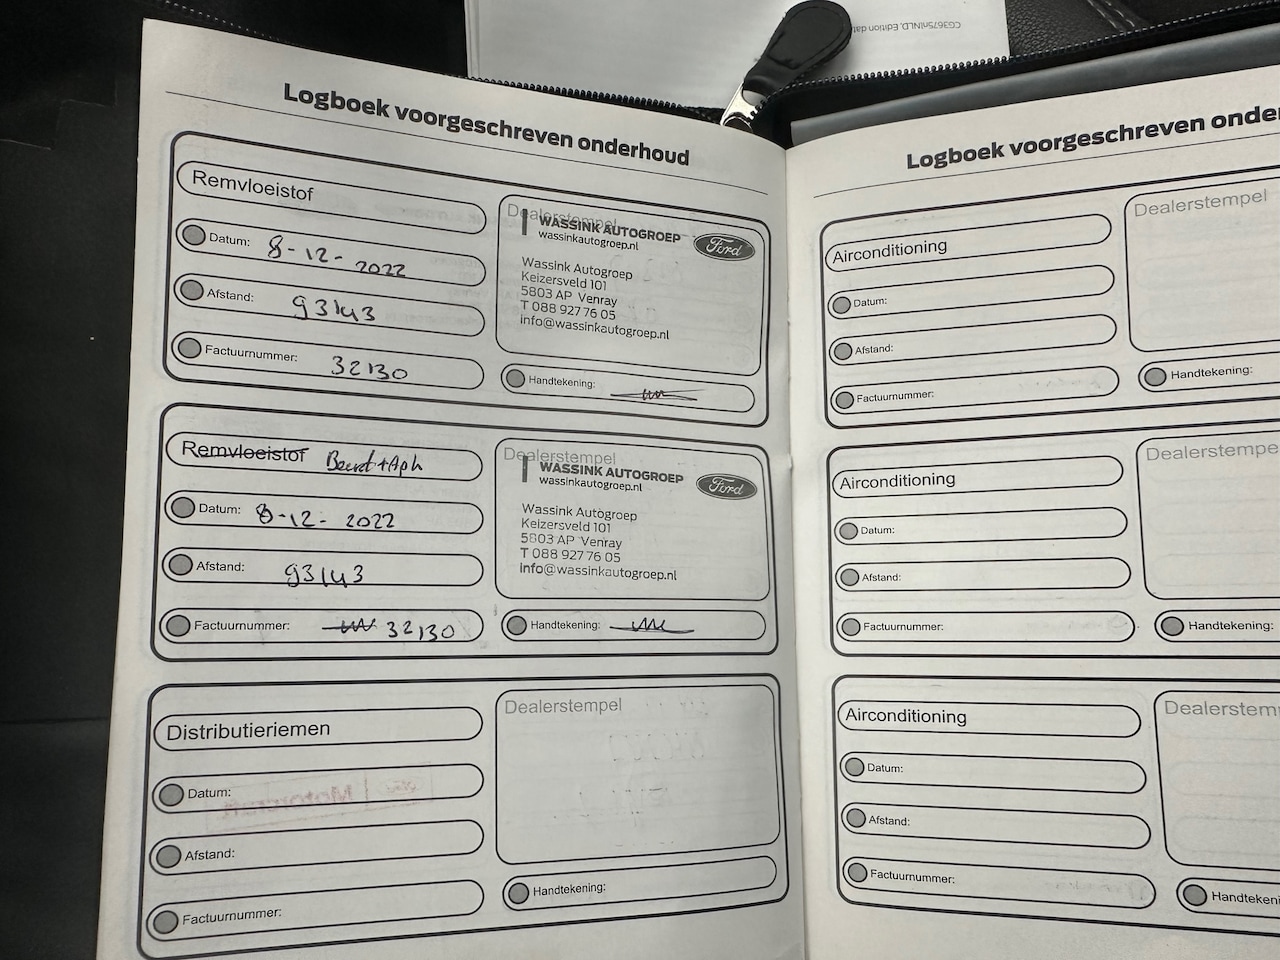 CG3675nlNLD, Edition dat
Logboek voorgeschreven onderhoud
Remvloeistof
Datum: 8-12-2022
Afstand: 93143
Factuurnummer: 32130
Dealerstempel
WASSINK AUTOGROEP
wassinkautogroep.nl
Ford
Wassink Autogroep
Keizersveld 101
5803 AP Venray
T 088 927 76 05
info@wassinkautogroep.nl
Handtekening:
Remvloeistof Beurt+Apk
Datum: 8-12-2022
Afstand: 93143
Factuurnummer: 32130
Dealerstempel
WASSINK AUTOGROEP
wassinkautogroep.nl
Ford
Wassink Autogroep
Keizersveld 101
5803 AP Venray
T 088 927 76 05
info@wassinkautogroep.nl
Handtekening:
Distributieriemen
Datum:
Afstand:
Factuurnummer:
Dealerstempel
Handtekening:
Logboek voorgeschreven onder
Airconditioning
Datum:
Afstand:
Factuurnummer:
Dealerstempel
Handtekening:
Airconditioning
Datum:
Afstand:
Factuurnummer:
Dealerstempe
Handtekening:
Airconditioning
Datum:
Afstand:
Factuurnummer:
Dealerstem
Handtekeni